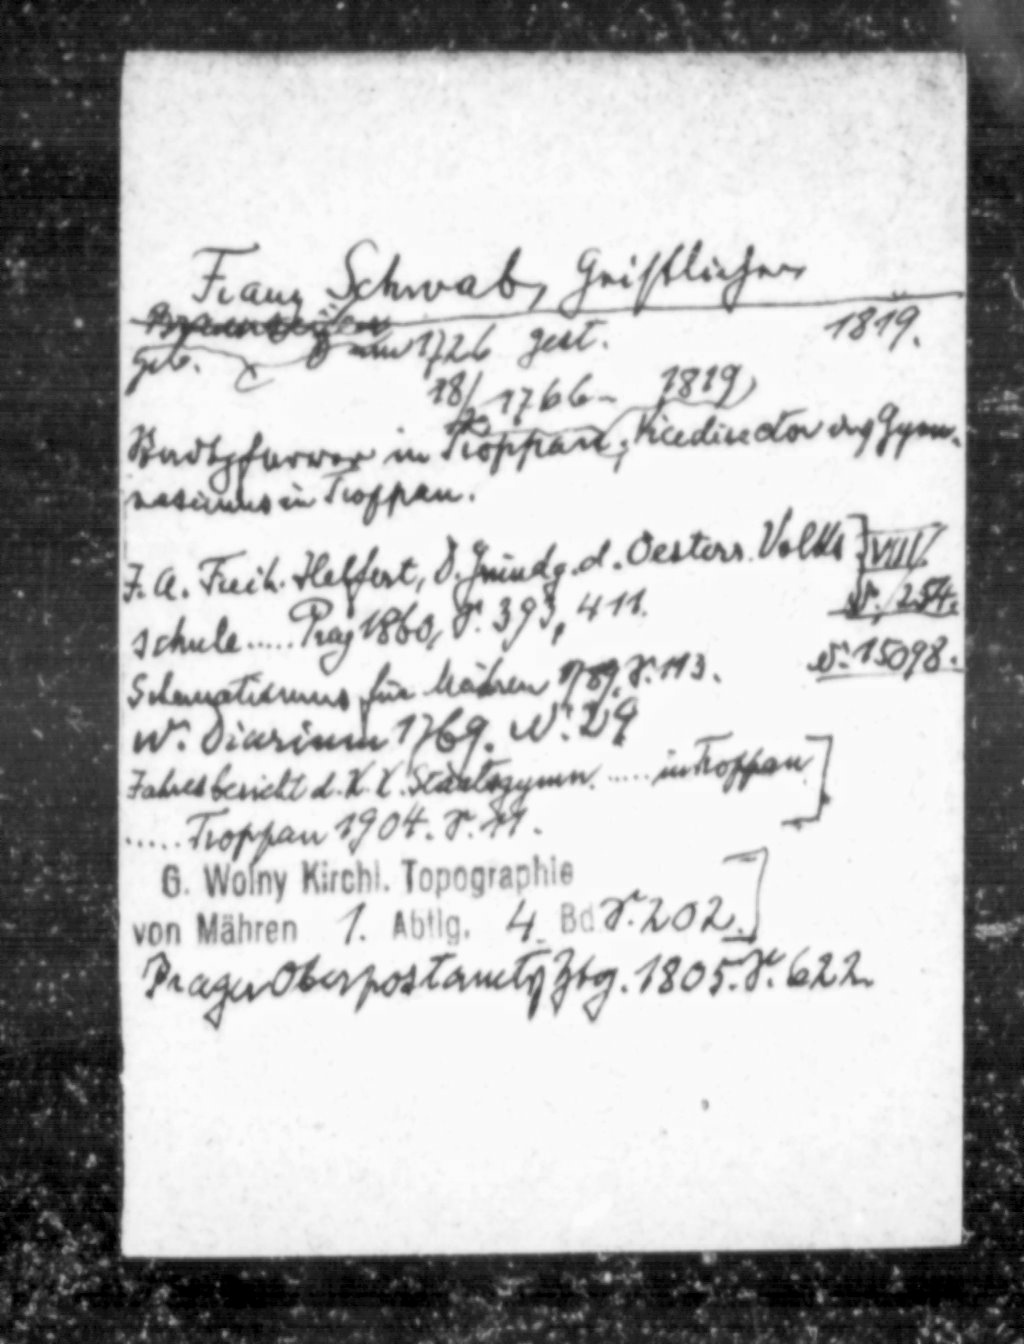 Franz Schwab, Geistlicher
geb. um 1726 gest. 1819.
18/ 1766 - 1819)
Stadtpfarrer in Troppau, Vicedirector des Gym-
nasiums in Troppau.
J. A. Freih. Helfert, D. Gründg. d. Oesterr. Volks] VIII.
schule ..... Prag 1860, S. 393, 411. S. 254.
Schematismus für Mähren 1789. S. 113. N. 15098.
W. Diarium 1769. N. 29
Jahresbericht d. K. K. Staatsgymn. ..... in Troppau]
..... Troppau 1904. S. 11.
G. Wolny Kirchl. Topographie
von Mähren 1. Abtlg. 4 Bd S. 202.]
Prager Oberpostamts Ztg. 1805. S. 622.